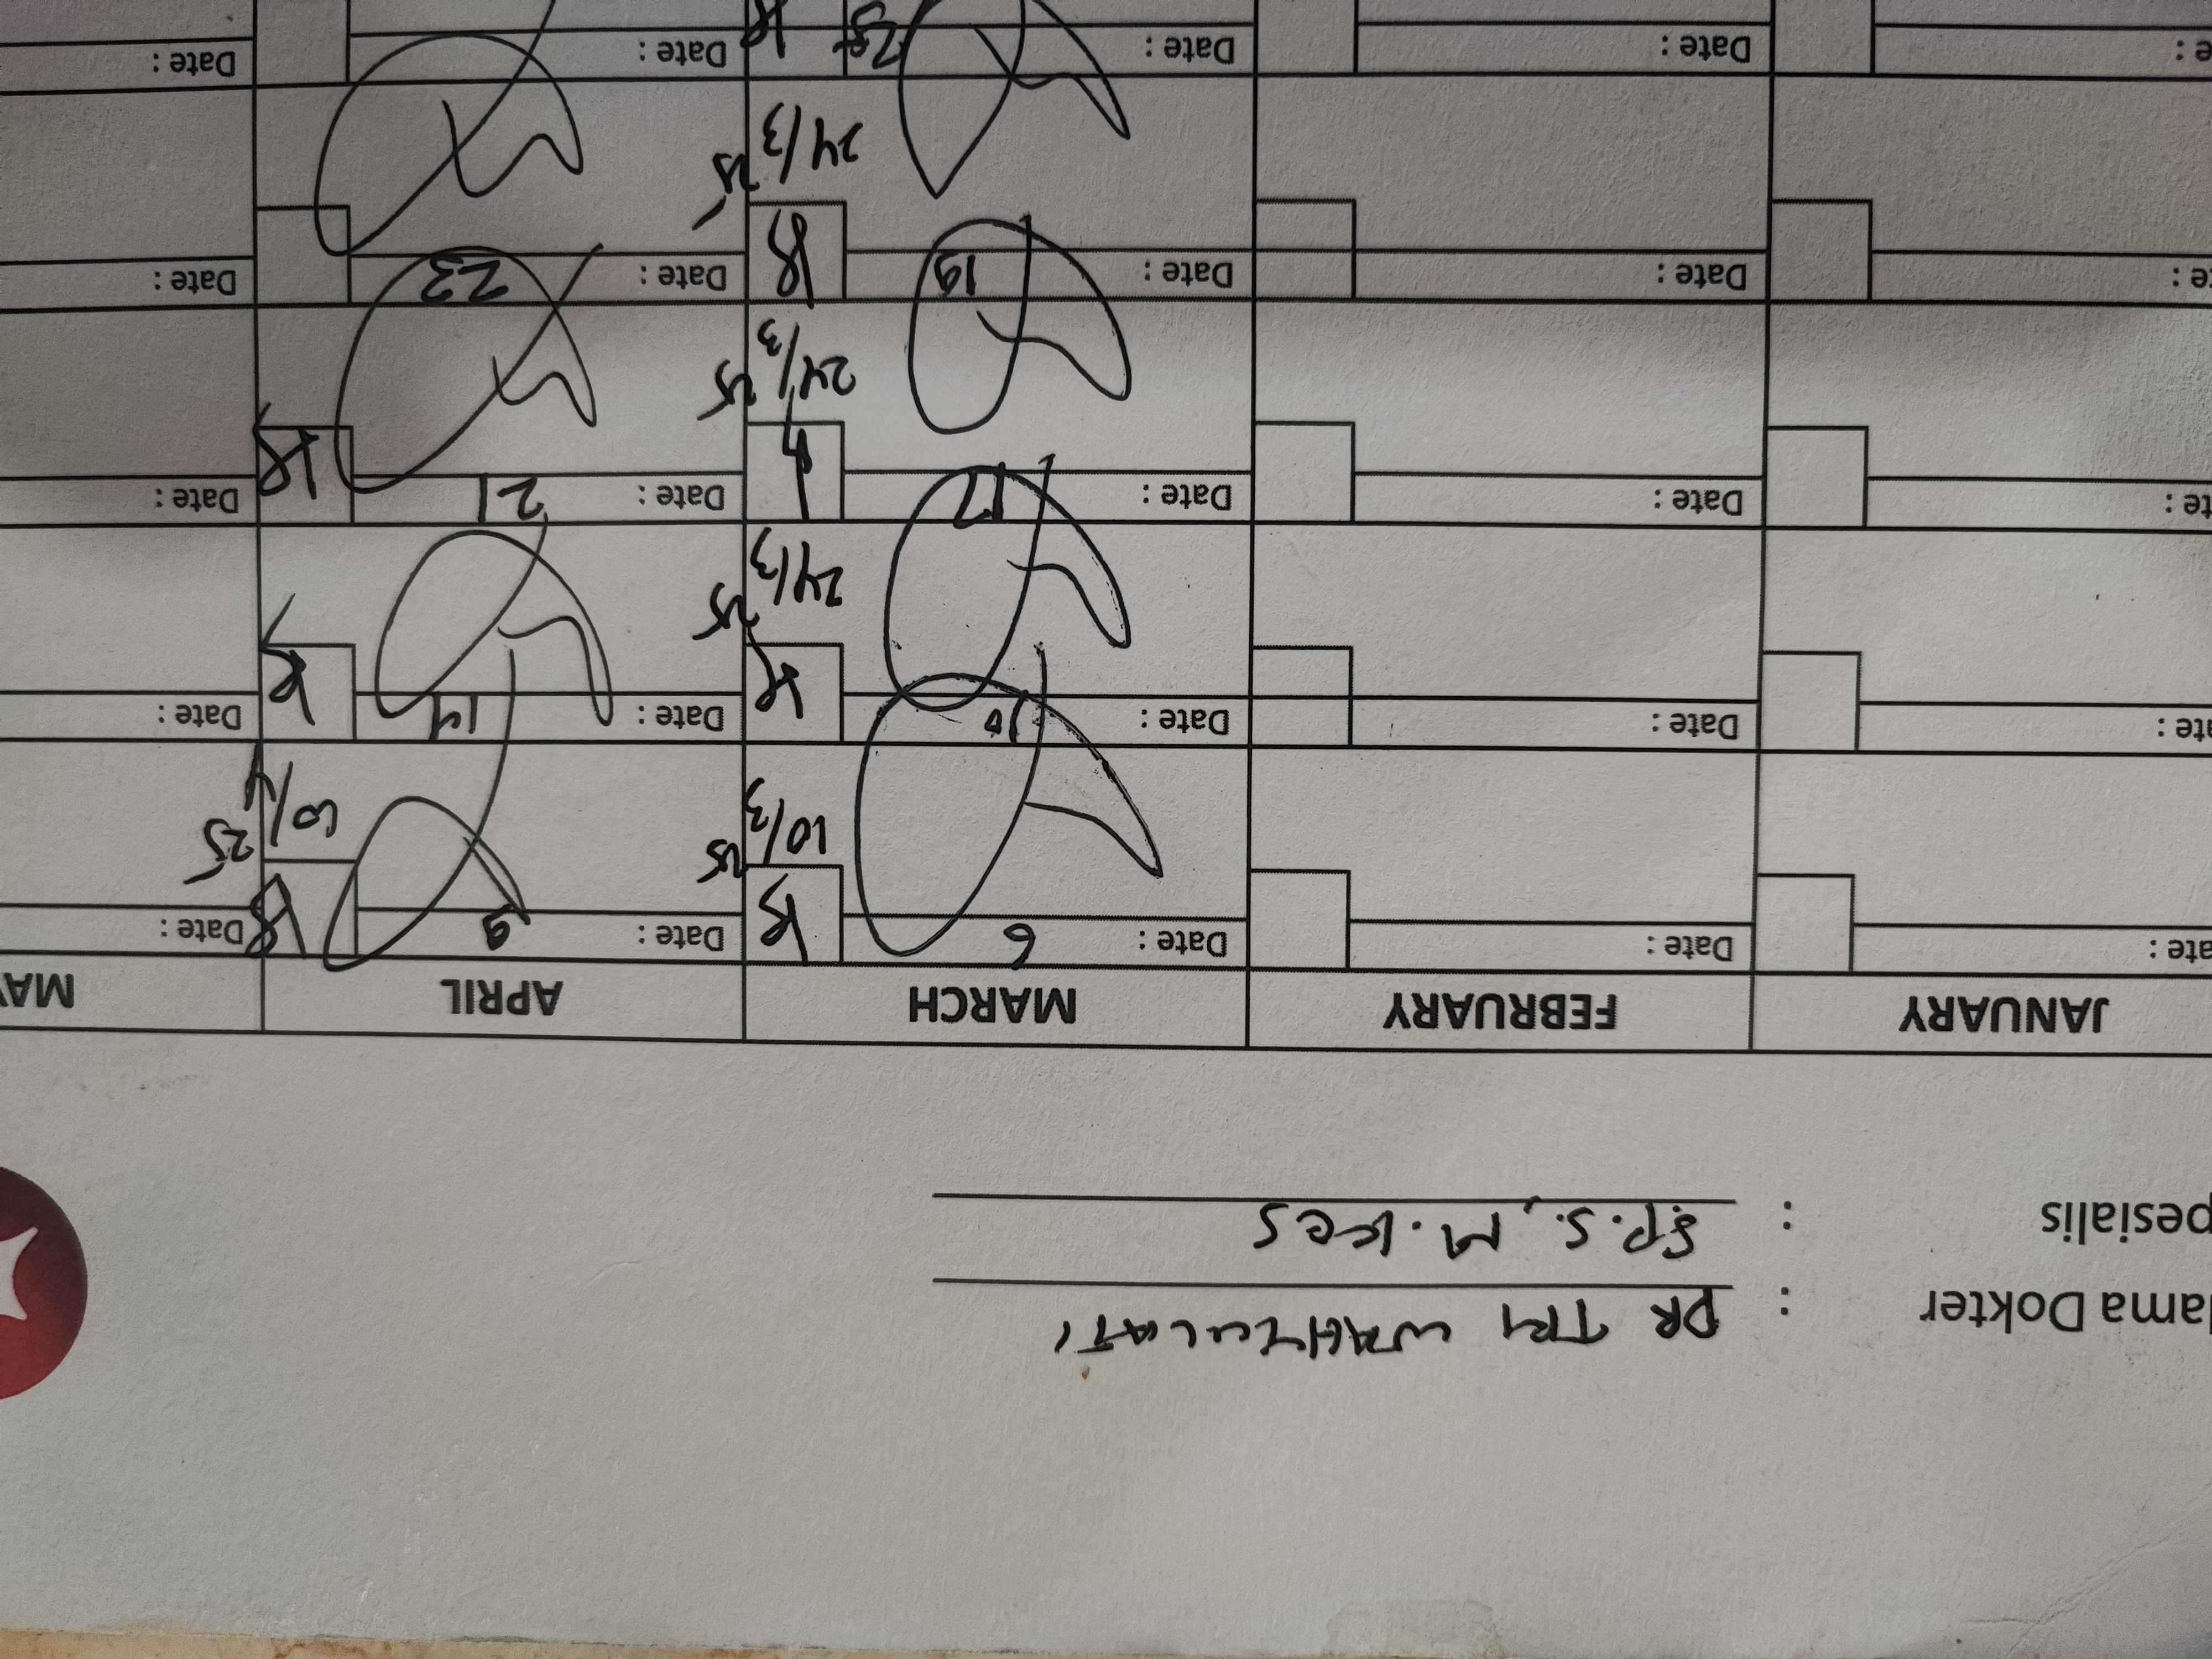 Nama Dokter : DR TRI WAHYULIATI
Spesialis : SP.S., M.KES
JANUARY FEBRUARY MARCH APRIL MAY
Date : Date : Date : 6 Date : 9 Date :
10/3 25 10/4 25
Date : Date : Date : 10 Date : 14 Date :
24/3 25
Date : Date : Date : 17 Date : 21 Date :
24/3 25
Date : Date : Date : 19 Date : 23 Date :
24/3 25
Date : Date : Date : Date : Date :